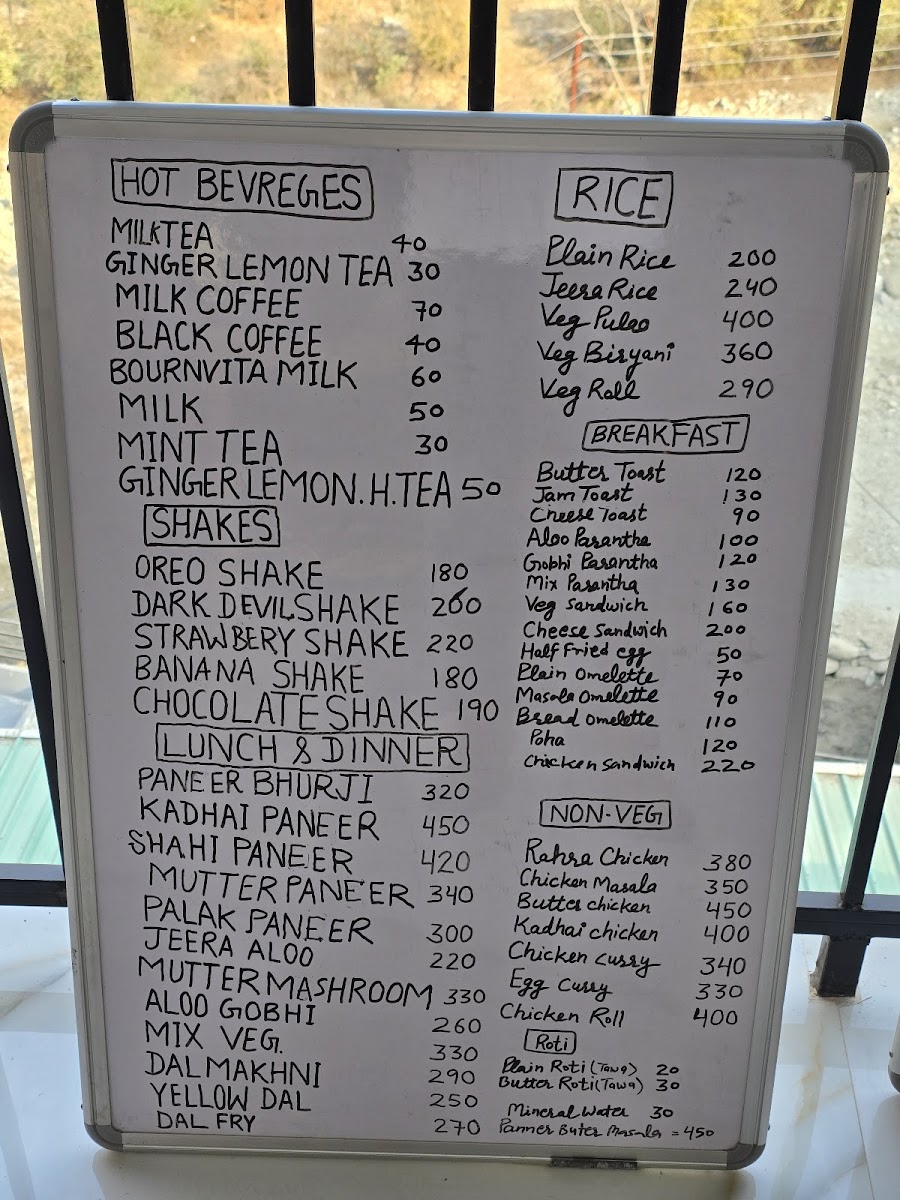 HOT BEVREGES
MILKTEA 40
GINGER LEMON TEA 30
MILK COFFEE 70
BLACK COFFEE 40
BOURNVITA MILK 60
MILK 50
MINT TEA 30
GINGER LEMON.H.TEA 50
SHAKES
OREO SHAKE 180
DARK DEVILSHAKE 200
STRAWBERY SHAKE 220
BANANA SHAKE 180
CHOCOLATE SHAKE 190
LUNCH & DINNER
PANEER BHURJI 320
KADHAI PANEER 450
SHAHI PANEER 420
MUTTER PANEER 340
PALAK PANEER 300
JEERA ALOO 220
MUTTER MASHROOM 330
ALOO GOBHI 260
MIX VEG. 330
DAL MAKHNI 290
YELLOW DAL 250
DAL FRY 270
RICE
Plain Rice 200
Jeera Rice 240
Veg Pulao 400
Veg Biryani 360
Veg Roll 290
BREAKFAST
Butter Toast 120
Jam Toast 130
Cheese Toast 90
Aloo Parantha 100
Gobhi Parantha 120
Mix Parantha 130
Veg Sandwich 160
Cheese Sandwich 200
Half Fried egg 50
Plain Omelette 70
Masala Omelette 90
Bread Omelette 110
Poha 120
Chicken Sandwich 220
NON-VEG
Rahra Chicken 380
Chicken Masala 350
Butter chicken 450
Kadhai chicken 400
Chicken curry 340
Egg Curry 330
Chicken Roll 400
Roti
Plain Roti (Tawa) 20
Butter Roti (Tawa) 30
Mineral Water 30
Panner Buter Masala = 450